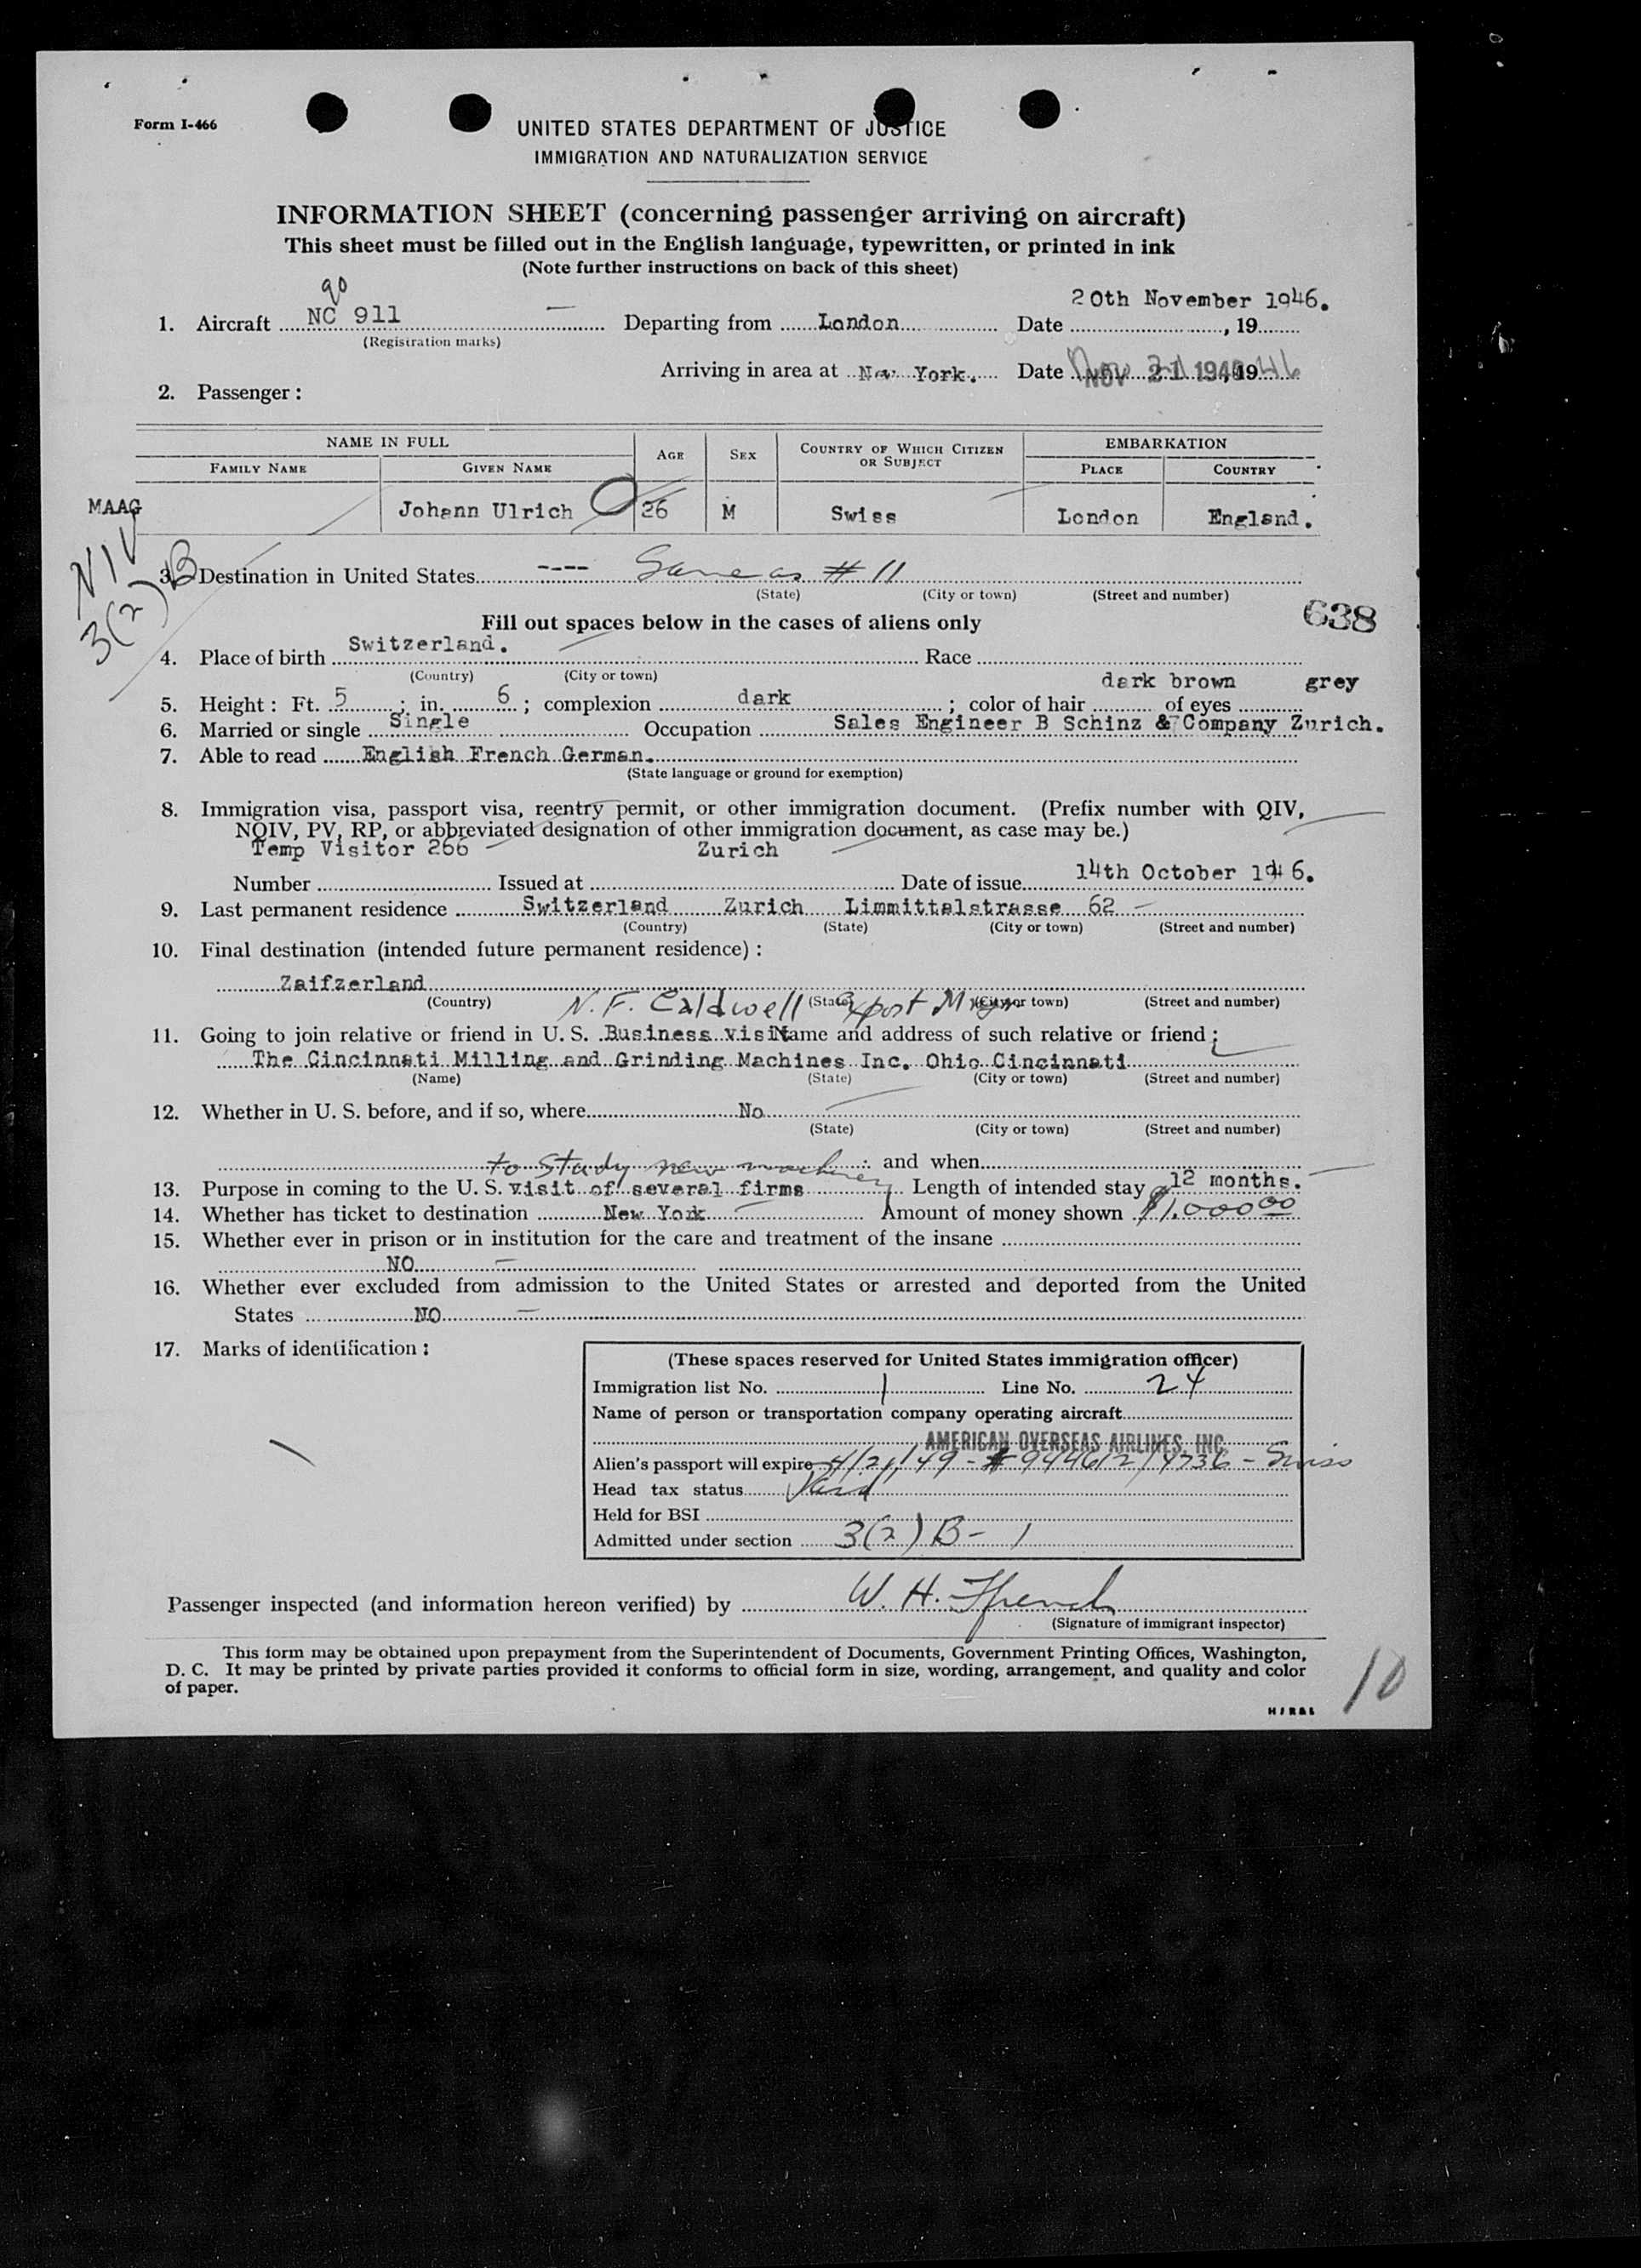 Form I-466
UNITED STATES DEPARTMENT OF JUSTICE
IMMIGRATION AND NATURALIZATION SERVICE
INFORMATION SHEET (concerning passenger arriving on aircraft)
This sheet must be filled out in the English language, typewritten, or printed in ink
(Note further instructions on back of this sheet)
90
20th November 1946.
1. Aircraft NC 911 Departing from London Date , 19
(Registration marks)
Arriving in area at New York. Date NOV 21 1946, 1946
2. Passenger:
NAME IN FULL AGE SEX COUNTRY OF WHICH CITIZEN OR SUBJECT EMBARKATION
FAMILY NAME GIVEN NAME PLACE COUNTRY
MAAG Johann Ulrich 26 M Swiss London England.
NIV
3(2)B
3. Destination in United States ---- Same as # 11
(State) (City or town) (Street and number)
638
Fill out spaces below in the cases of aliens only
4. Place of birth Switzerland. Race
(Country) (City or town)
dark brown grey
5. Height: Ft. 5; in. 6; complexion dark; color of hair of eyes
6. Married or single Single Occupation Sales Engineer B Schinz & Company Zurich.
7. Able to read English French German.
(State language or ground for exemption)
8. Immigration visa, passport visa, reentry permit, or other immigration document. (Prefix number with QIV,
NQIV, PV, RP, or abbreviated designation of other immigration document, as case may be.)
Temp Visitor 266 Zurich 14th October 1946.
Number Issued at Date of issue
9. Last permanent residence Switzerland Zurich Limmittalstrasse 62
(Country) (State) (City or town) (Street and number)
10. Final destination (intended future permanent residence):
Zaifzerland
(Country) (State) (City or town) (Street and number)
N. F. Caldwell Export Mngr
11. Going to join relative or friend in U. S. Business visit Name and address of such relative or friend:
The Cincinnati Milling and Grinding Machines Inc. Ohio Cincinnati
(Name) (State) (City or town) (Street and number)
12. Whether in U. S. before, and if so, where No
(State) (City or town) (Street and number)
; and when
to study new machinery
13. Purpose in coming to the U. S. visit of several firms Length of intended stay 12 months.
14. Whether has ticket to destination New York Amount of money shown $1,000 00
15. Whether ever in prison or in institution for the care and treatment of the insane
NO
16. Whether ever excluded from admission to the United States or arrested and deported from the United
States NO
17. Marks of identification:
(These spaces reserved for United States immigration officer)
Immigration list No. 1 Line No. 24
Name of person or transportation company operating aircraft
AMERICAN OVERSEAS AIRLINES, INC.
Alien's passport will expire 4/21/49 - # 944612/4736 - Swiss
Head tax status Paid
Held for BSI
Admitted under section 3(2) B - 1
Passenger inspected (and information hereon verified) by W. H. Ffrench
(Signature of immigrant inspector)
This form may be obtained upon prepayment from the Superintendent of Documents, Government Printing Offices, Washington,
D. C. It may be printed by private parties provided it conforms to official form in size, wording, arrangement, and quality and color
of paper.
10